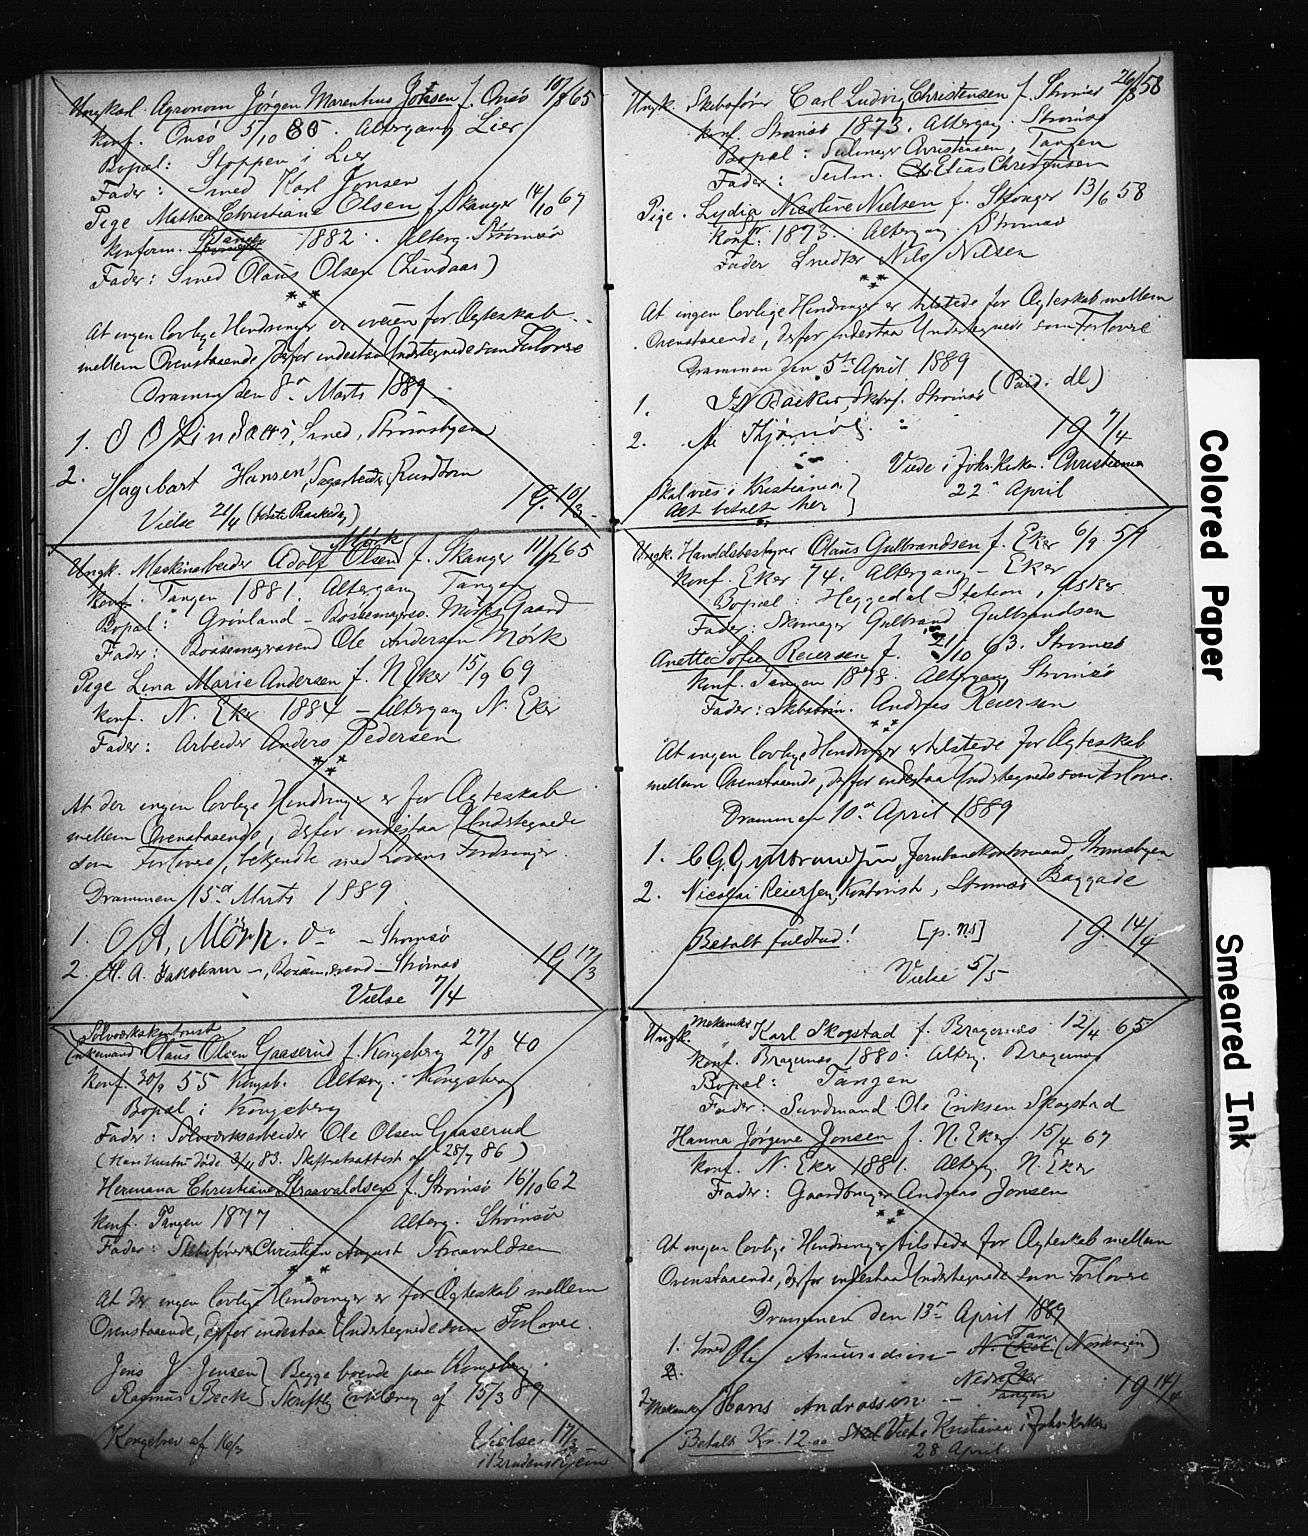 Ungkal. Agronom Jørgen Marentius Johnsen f. Onsø 10/8 65
Konf. Onsø 5/10 80. Altergang Lier
Bopæl: Stoppen i Lier
Fader: Smed Karl Jonsen
Pige Mathea Christiane Olsen f. Skanger 14/10 67
Konform. Tangen 1882. Alterg. Strømsø
Fader: Smed Olaus Olsen (Lindaas)
At ingen lovlige Hindringer er iveien for Ægteskab
mellem Ovenstaaende, derfor indestaa Undertegnede som Forlovere
Drammen den 8de Marts 1889
1. O O Lindaas, Smed, Strømsbyen
2. Hagbart Hansen, Rundtom
1 G. 10/3
Vielse 21/4 (første Paaskedag)
Ungk. Maskinarbeider Adolf Olsen Mørk f. Skanger 11/12 65
Konf. Tangen 1881. Altergang Tangen
Bopæl: Grønland – Bøssemagers. Mørks Gaard
Fader: Bøssemagersvend Ole Andersen Mørk
Pige Lina Marie Andersen f. N. Eker 15/9 69
Konf. N. Eker 1884 – Altergang N. Eker
Fader: Arbeider Anders Pedersen
At der ingen lovlige Hindringer er for Ægteskab
mellem Ovenstaaende, derfor indestaa Undertegnede
som Forlovere, bekjendte med Lovens Fordringer.
Drammen 15de Marts 1889
1. O A. Mørk. – Strømsø
2. H. A. Jakobsen – Strømsø
1 G 17/3
Vielse 7/4
Sølvværkskontorist
Enkemand Claus Olsen Gaaserud f. Kongsberg 27/8 40
Konf. 30/9 55 Kongsb. Alterg. Kongsberg
Bopæl i Kongsberg
Fader: Sølvværksarbeider Ole Olsen Gaaserud
(Hans Hustru døde 3/4 83. Skifteattest af 28/7 86)
Hermana Christiane Straavaldsen f. Strømsø 16/10 62
Konf. Tangen 1877 Alterg. Strømsø
Fader: Skibsfører Christian August Straavaldsen
At der ingen lovlige Hindringer er for Ægteskab mellem
Ovenstaaende, derfor indestaa Undertegnede som Forlovere.
Jens J Jensen } Begge boende paa Kongsberg.
Rasmus Beck } Skriftlig Erklæring af 15/3 89
Kongebrev af 16/3
Vielse 17/3
i Brudens Hjem
Ungk. Skibsfører Carl Ludvig Christensen f. Strømsø 26/8 58
Konf. Strømsø 1873. Altergang. Strømsø
Bopæl: Christensen, Tangen
Fader: Elias Christensen
Pige. Lydia Nicoline Nielsen f. Skoger 13/6 58
Konf. 1873. Altergang. Strømsø
Fader Snedker Nils Nilsen
At ingen lovlige Hindringer er tilstede for Ægteskab mellem
Ovenstaaende, derfor indestaa Undertegnede som Forlovere
Drammen den 5te April 1889
1. Strømsø
2.
1 G 7/4
Skal vies i Kristiania
Alt betalt her
Viede i Johs. Kirken Christiania
22de April
Ungk. Handelsbestyrer Claus Gulbrandsen f. Eker 6/9 59
Konf. Eker 74. Altergang – Eker
Bopæl: Heggedal Station, Asker
Fader: Skomager Gulbrand Gulbrandsen
Anette Sofie Reiersen f. 21/10 63. Strømsø
Konf. Tangen 1878. Altergang Strømsø
Fader: Andreas Reiersen
At ingen lovlige Hindringer er tilstede for Ægteskab
mellem Ovenstaaende, derfor indestaa Undertegnede som Forlovere.
Drammen 10de April 1889
1. C G Gulbrandsen Jernbanekontormand, Strømsbyen
2. Nicolai Reiersen, Kontorist, Strømsø
1 G. 14/4
Betalt fuldtud!
Vielse 5/5
Ungk. Mekaniker Karl Skogstad f. Bragernæs 12/4 65
Konf. Bragernæs 1880. Alterg. Bragernæs
Bopæl: Tangen
Fader: Sundmand Ole Eriksen Skogstad
Hanna Jørgine Jonsen f. N. Eker. 15/4 67
Konf. N. Eker 1881. Alterg. N. Eker
Fader: Gaardbruger Andreas Jonsen
At ingen lovlige Hindringer tilstede for Ægteskab mellem
Ovenstaaende, derfor indestaa Undertegnede som Forlovere
Drammen den 13de April 1889
1. Smed Ole Amundsen
2. Mekaniker Hans Andreassen – Nedre Eker
1 G 14/4
Betalt Kr. 12.00 Skal Viet i Kristiania i Johs. Kirken
28 April
Colored Paper
Smeared Ink